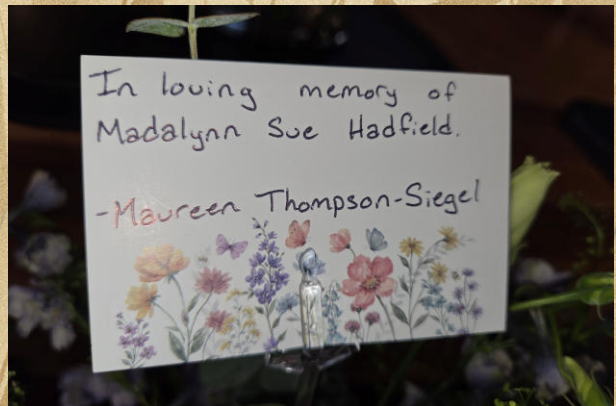 In loving memory of
Madalynn Sue Hadfield.
-Maureen Thompson-Siegel